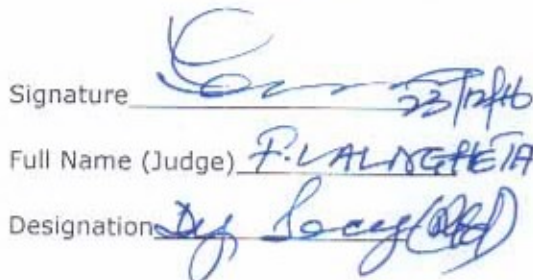 Signature 23/12/16
Full Name (Judge) F. LALNGHETA
Designation Dy Secy (Rtd)